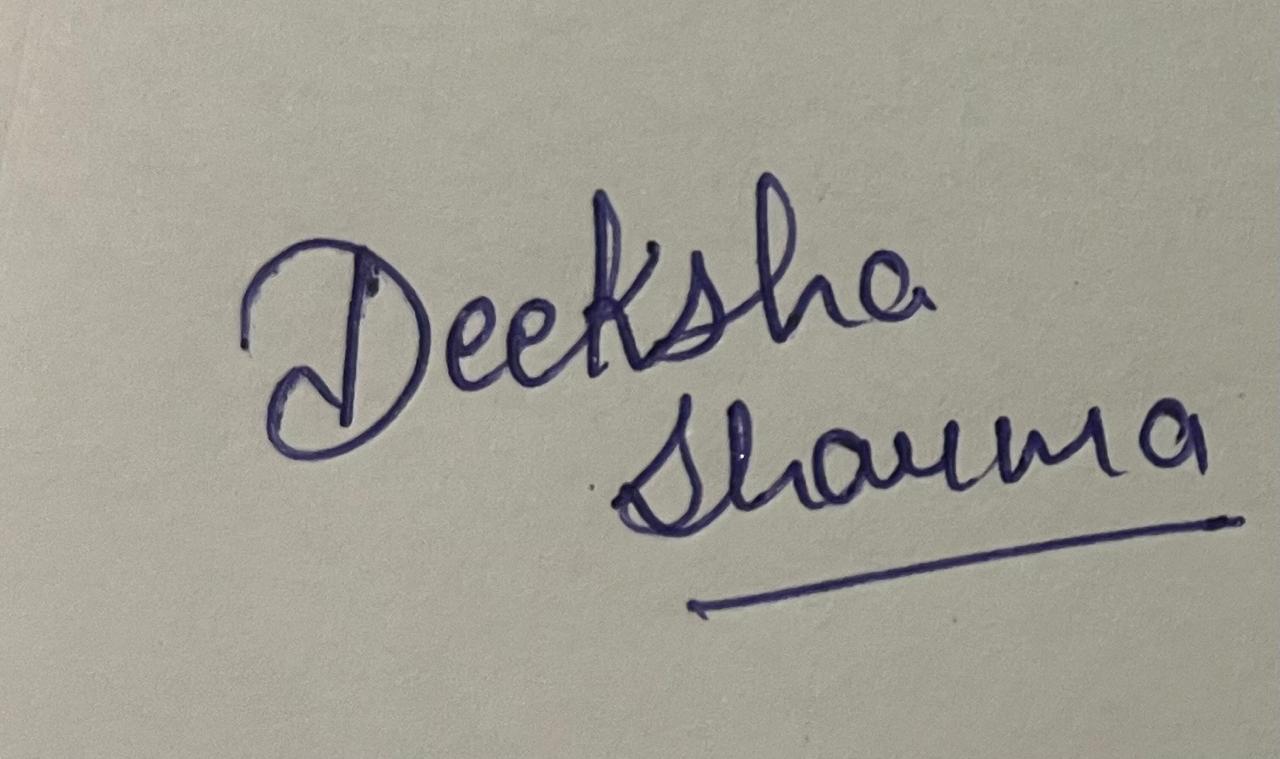 Deeksha
Sharma